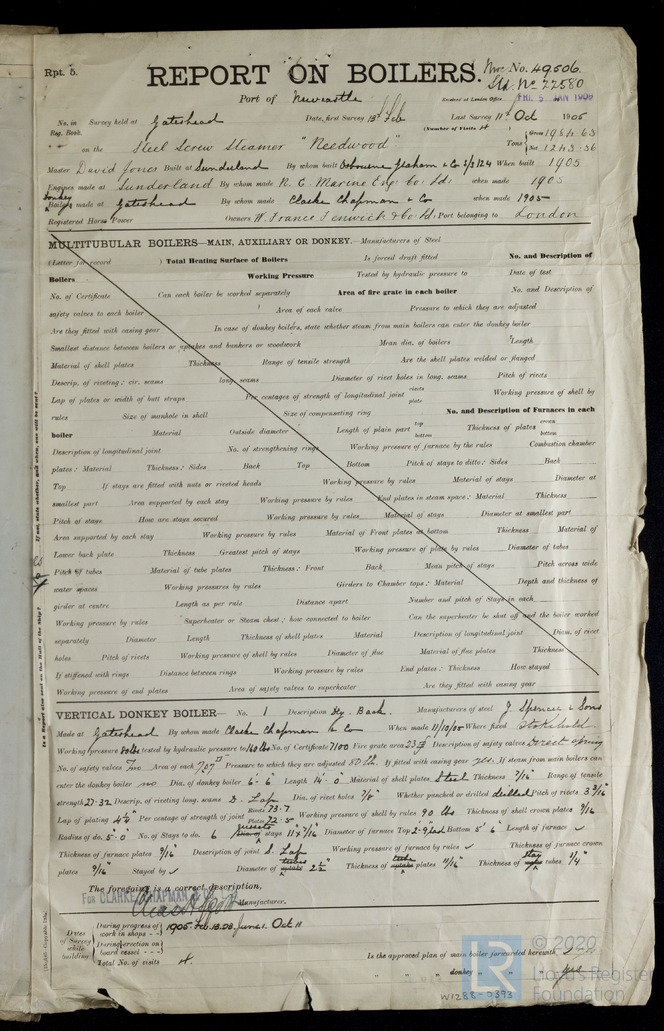 Rpt. 5.
REPORT ON BOILERS.
Nwc. No. 49506.
Sld. No 22580
Port of Newcastle
Received at London Office FRI. 5 JAN 1906
No. in Survey held at Gateshead Date, first Survey 13th Feb Last Survey 11th Oct 1905
Reg. Book. (Number of Visits 4)
on the Steel Screw Steamer "Needwood" Tons Gross 1984.63 Net 1243.36
Master David Jones Built at Sunderland By whom built Osbourne Graham & Co When built 1905
Engines made at Sunderland By whom made N. E. Marine Eng. Co. Ld. when made 1905
Donkey Boilers made at Gateshead By whom made Clarke Chapman & Co when made 1905
Registered Horse Power Owners W. France Fenwick & Co Ld. Port belonging to London
MULTITUBULAR BOILERS—MAIN, AUXILIARY OR DONKEY.—Manufacturers of Steel
(Letter for record ) Total Heating Surface of Boilers Is forced draft fitted No. and Description of
Boilers Working Pressure Tested by hydraulic pressure to Date of test
No. of Certificate Can each boiler be worked separately Area of fire grate in each boiler No. and Description of
safety valves to each boiler Area of each valve Pressure to which they are adjusted
Are they fitted with easing gear In case of donkey boilers, state whether steam from main boilers can enter the donkey boiler
Smallest distance between boilers or uptakes and bunkers or woodwork Mean dia. of boilers Length
Material of shell plates Thickness Range of tensile strength Are the shell plates welded or flanged
Descrip. of riveting: cir. seams long. seams Diameter of rivet holes in long. seams Pitch of rivets
Lap of plates or width of butt straps Per centages of strength of longitudinal joint rivets plate Working pressure of shell by
rules Size of manhole in shell Size of compensating ring No. and Description of Furnaces in each
boiler Material Outside diameter Length of plain part top bottom Thickness of plates crown bottom
Description of longitudinal joint No. of strengthening rings Working pressure of furnace by the rules Combustion chamber
plates: Material Thickness: Sides Back Top Bottom Pitch of stays to ditto: Sides Back
Top If stays are fitted with nuts or riveted heads Working pressure by rules Material of stays Diameter at
smallest part Area supported by each stay Working pressure by rules End plates in steam space: Material Thickness
Pitch of stays How are stays secured Working pressure by rules Material of stays Diameter at smallest part
Area supported by each stay Working pressure by rules Material of Front plates at bottom Thickness Material of
Lower back plate Thickness Greatest pitch of stays Working pressure of plate by rules Diameter of tubes
Pitch of tubes Material of tube plates Thickness: Front Back Mean pitch of stays Pitch across wide
water spaces Working pressures by rules Girders to Chamber tops: Material Depth and thickness of
girder at centre Length as per rule Distance apart Number and pitch of Stays in each
Working pressure by rules Superheater or Steam chest; how connected to boiler Can the superheater be shut off and the boiler worked
separately Diameter Length Thickness of shell plates Material Description of longitudinal joint Diam. of rivet
holes Pitch of rivets Working pressure of shell by rules Diameter of flue Material of flue plates Thickness
If stiffened with rings Distance between rings Working pressure by rules End plates: Thickness How stayed
Working pressure of end plates Area of safety valves to superheater Are they fitted with easing gear
VERTICAL DONKEY BOILER— No. 1 Description Manufacturers of steel J. Spencer & Sons
Made at Gateshead By whom made Clarke Chapman & Co When made 11/10/05 Where fixed Stokehold
Working pressure 80 lbs tested by hydraulic pressure to 160 lbs No. of Certificate 7100 Fire grate area 23 Description of safety valves Direct spring
No. of safety valves Two Area of each 7.07 Pressure to which they are adjusted If fitted with easing gear yes If steam from main boilers can
enter the donkey boiler no Dia. of donkey boiler 6'.6" Length 14'.0" Material of shell plates Steel Thickness 7/16" Range of tensile
strength 27.32 Descrip. of riveting long. seams D. Lap Dia. of rivet holes 7/8" Whether punched or drilled drilled Pitch of rivets
Lap of plating Per centage of strength of joint Rivets 73.7 Plates 72.5 Working pressure of shell by rules 90 lbs Thickness of shell crown plates 9/16
Radius of do. 5'.0" No. of Stays to do. 6 Diameter of furnace Top Bottom 5' 6" Length of furnace
Thickness of furnace plates 9/16" Description of joint S. Lap Working pressure of furnace by rules Thickness of furnace crown
plates 9/16" Stayed by Diameter of tubes 2½" Thickness of tube plates 11/16" Thickness of stay tubes 1/4"
The foregoing is a correct description,
FOR CLARKE, CHAPMAN & Co
Manufacturer.
Dates of Survey while building
During progress of work in shops - - 1905. Feb 13. 28. June 1. Oct 11
During erection on board vessel - - -
Total No. of visits 4.
Is the approved plan of main boiler forwarded herewith
" " " donkey " " " yes
Is a Report also sent on the Hull of the Ship? If not, state whether, and when, one will be sent?
W1288-0393
© 2020
Lloyd's Register
Foundation
LR